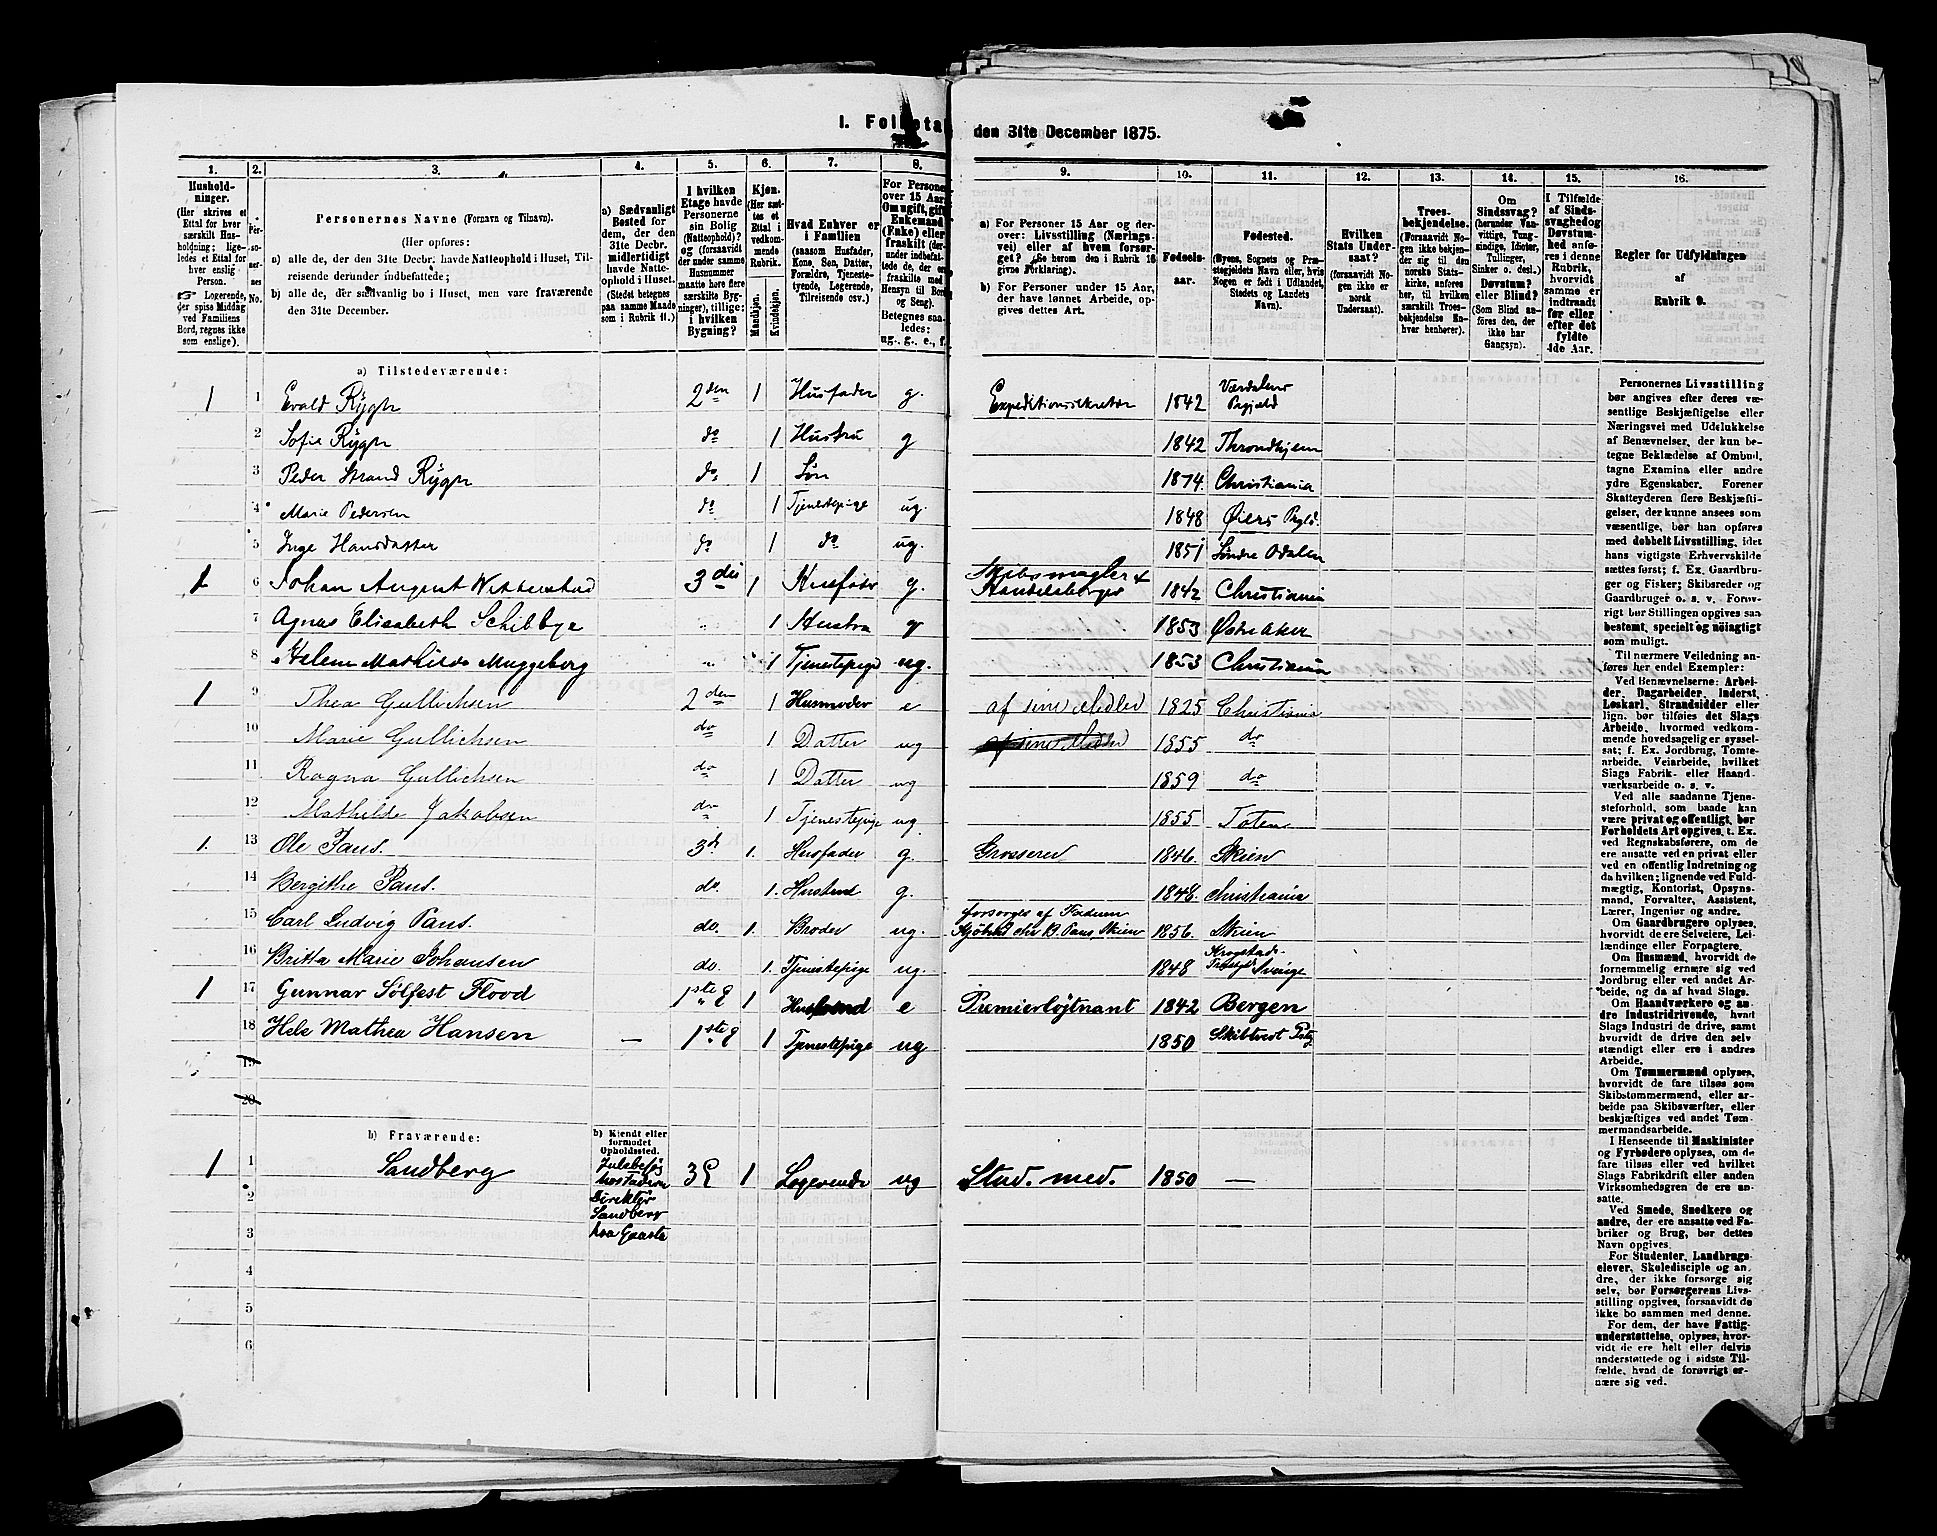 I. Folketal
den 31te December 1875.
1. 2. 3. 4. 5. 6. 7. 8. 9. 10. 11. 12. 13. 14. 15. 16.
Hushold-
ninger.
(Her skrives et
Ettal for hver
særskilt Hus-
holdning; lige-
ledes et Ettal
for hver
enslig
Person.
☞ Logerende,
der spise Middag
ved Familiens
Bord, regnes ikke
som enslige).
Per-
so-
ner-
nes
No.
Personernes Navne (Fornavn og Tilnavn).
(Her opføres:
a) alle de, der den 31te Decbr. havde Natteophold i Huset, Til-
reisende derunder indbefattede;
b) alle de, der sædvanlig bo i Huset, men vare fraværende
den 31te December.
a) Sædvanligt
Bosted for
dem, der den
31te Decbr.
midlertidigt
havde Natte-
ophold i Huset.
(Stedet betegnes
paa samme Maade
som i Rubrik 11.)
I hvilken
Etage havde
Personerne
sin Bolig
(Natteophold)?
og (forsaavidt
der under samme
Husnummer
maatte høre flere
særskilte Byg-
ninger), tillige:
i hvilken
Bygning?
Kjøn.
(Her sæt-
tes et
Ettal i
vedkom-
mende
Rubrik.
Mandkjøn.
Kvindekjøn.
Hvad Enhver er
i Familien
(saasom Husfader,
Kone, Søn, Datter,
Forældre, Tjeneste-
tyende, Logerende,
Tilreisende osv.)
For Personer
over 15 Aar:
Om ugift, gift,
Enkemand
(Enke) eller
fraskilt (der-
under indbefat-
tede de, der ere
fraskilte med
Hensyn til Bord
og Seng).
Betegnes saa-
ledes:
ug., g., e., f.
a) For Personer 15 Aar og der-
over: Livsstilling (Nærings-
vei) eller af hvem forsør-
get? (Se herom den i Rubrik 16
givne Forklaring).
b) For Personer under 15 Aar,
der have lønnet Arbeide, op-
gives dettes Art.
Fødsels-
aar.
Fødested.
(Byens, Sognets og Præ-
stegjeldets Navn eller, hvis
Nogen er født i Udlandet,
Stedets og Landets
Navn).
Hvilken
Stats Under-
saat?
(forsaavidt No-
gen ikke er
norsk
Undersaat).
Troes-
bekjendelse.
(Forsaavidt No-
gen ikke bekjen-
der sig til den
norske Stats-
kirke, anføres
her, til hvilken
særskilt Troes-
bekjendelse En-
hver henhører).
Om
Sindssvag?
(herunder Van-
vittige, Tung-
sindige, Idioter,
Sinker o. desl.)
Døvstum?
eller Blind?
(Som Blind an-
føres den, der
ikke har
Gangsyn).
I Tilfælde
af Sinds-
svaghed og
Døvstum-
hed anfø-
res i denne
Rubrik,
hvorvidt
samme er
indtraadt
før eller
efter det
fyldte
4de Aar.
Regler for Udfyldningen
af
Rubrik 9.
a) Tilstedeværende:
1 1 Evald Rygh 2den 1 Husfader g. Expeditionssekretær 1842 Værdalens Prgjeld
2 Sofie Rygh do 1 Hustru g 1842 Throndhjem
3 Peder Strand Rygh do 1 Søn 1874 Christiania
4 Marie Pedersen do 1 Tjenestepige ug. 1848 Øiers Prgld.
5 Inge Hansdatter do 1 do ug. 1851 Søndre Odalen
1 6 Johan August 3die 1 Husfader g. Skibsmægler & Handelsborger 1842 Christiania
7 Agnes Elisabeth Schibbye " 1 Hustru g 1853 Østre Aker
8 Helene Mathilde Muggeborg " 1 Tjenestepige ug. 1853 Christiania
1 9 Thea Gullichsen 2den 1 Husmoder e af sine Midler 1825 Christiania
10 Marie Gullichsen do 1 Datter ug af sine Midler 1855 do
11 Ragna Gullichsen do 1 Datter ug 1859 do
12 Mathilde Jakobsen do 1 Tjenestepige ug 1855 Toten
1. 13 Ole Paus. 3d 1. Husfader g. Grosserer 1846. Skien
14 Bergithe Paus. do. 1. Hustrud g. 1848. Christiania
15 Carl Ludvig Paus. do. 1. Broder ug. forsørges af Faderen Kjøbmd. B. Paus, Skien 1856. Skien
16 Britta Marie Johansen do. 1. Tjenestepige ug. 1848 Krogstad Sverige
1 17 Gunnar Sølfest Flood 1ste E 1 e Premierløjtnant 1842 Bergen
18 Hele Mathea Hansen — 1ste E 1 Tjenestepige ug 1850 Skibtvedt
19
20
b) Fraværende:
b) Kjendt eller
formodet
Opholdssted.
1 1 Sandberg 3E 1 Logerende ug Stud. med. 1850 —
Julebesøg
hos Faderen
Direktør
Sandberg
paa Gausta
2
3
4
5
6
Personernes Livsstilling
bør angives efter deres væ-
sentlige Beskjæftigelse eller
Næringsvei med Udelukkelse
af Benævnelser, der kun be-
tegne Beklædelse af Ombud,
tagne Examina eller andre
ydre Egenskaber. Forener
Skatteyderen flere Beskjæfti-
gelser, der kunne ansees som
væsentlige, bør han opføres
med dobbelt Livsstilling, idet
hans vigtigste Erhvervskilde
sættes først; f. Ex. Gaardbru-
ger og Fisker; Skibsreder og
Gaardbruger o. s. v. Forøv-
rigt bør Stillingen opgives saa
bestemt, specielt og nøiagtigt
som muligt.
Til nærmere Veiledning an-
føres her endel Exempler:
Ved Benævnelserne: Arbei-
der, Dagarbeider, Inderst,
Løskarl, Strandsidder eller
lign. bør tilføies det Slags
Arbeide, hvormed vedkom-
mende hovedsagelig er syssel-
sat; f. Ex. Jordbrug, Tomte-
arbeide, Veiarbeide, hvilket
Slags Fabrik- eller Haand-
værksarbeide o. s. v.
Ved alle saadanne Tjene-
steforhold, som baade kan
være privat og offentligt, bør
Forholdets Art opgives, f. Ex.
ved Regnskabsførere, om de
ere ansatte ved en privat eller
ved en offentlig Indretning og
da hvilken; lignende ved Fuld-
mægtig, Kontorist, Opsyns-
mand, Forvalter, Assistent,
Lærer, Ingeniør og andre.
Om Gaardbrugere oplyses,
hvorvidt de ere Selveiere, Lei-
lændinge eller Forpagtere.
Om Husmænd, hvorvidt de
fornemmelig ernære sig ved
Jordbrug eller ved andet Ar-
beide, og da af hvad Slags.
Om Haandværkere og an-
dre Industridrivende, hvad
Slags Industri de drive, samt
hvorvidt de drive den selv-
stændigt eller ere i andres
Arbeide.
Om Tømmermænd oplyses,
hvorvidt de fare tilsøs som
Skibstømmermænd, eller ar-
beide paa Skibsværfter, eller
beskjæftiges ved andet Tøm-
mermandsarbeide.
I Henseende til Maskinister
og Fyrbødere oplyses, om de
fare tilsøs eller ved hvilket
Slags Fabrikdrift eller anden
Virksomhedsgren de ere an-
satte.
Ved Smede, Snedkere og
andre, der ere ansatte ved Fa-
briker og Brug, bør dettes
Navn opgives.
For Studenter, Landbrugs-
elever, Skoledisciple og an-
dre, der ikke forsørge sig
selv, bør Forsørgerens Livs-
stilling opgives, forsaavidt de
ikke bo sammen med denne.
For dem, der have Fattig-
understøttelse, oplyses, hvor-
vidt de ere helt eller delvis
understøttede og i sidste Til-
fælde, hvad de forøvrigt er-
nære sig ved.